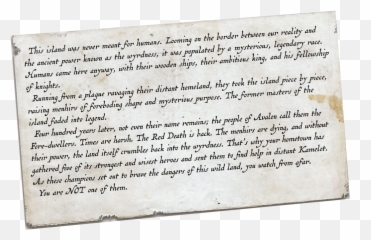 This island was never meant for humans. Looming on the border between our reality and
the ancient power known as the wyrdness, it was populated by a mysterious, legendary race.
Humans came here anyway, with their wooden ships, their ambitious king, and his fellowship
of knights.
Running from a plague ravaging their distant homeland, they took the island piece by piece,
raising menhirs of foreboding shape and mysterious purpose. The former masters of the
island faded into legend.
Four hundred years later, not even their name remains; the people of Avalon call them the
Fore-dwellers. Times are harsh. The Red Death is back. The menhirs are dying, and without
their power, the land itself crumbles back into the wyrdness. That's why your hometown has
gathered five of its strongest and wisest heroes and sent them to find help in distant Kamelot.
As these champions set out to brave the dangers of this wild land, you watch from afar.
You are NOT one of them.